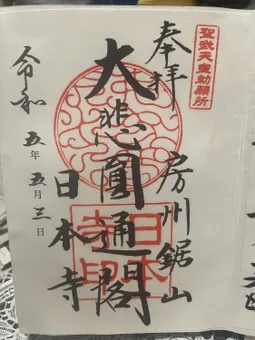 聖武天皇勅願所
奉拝
房州鋸山
大悲圓通閣
日本寺
令和五年五月三日
日本
寺印